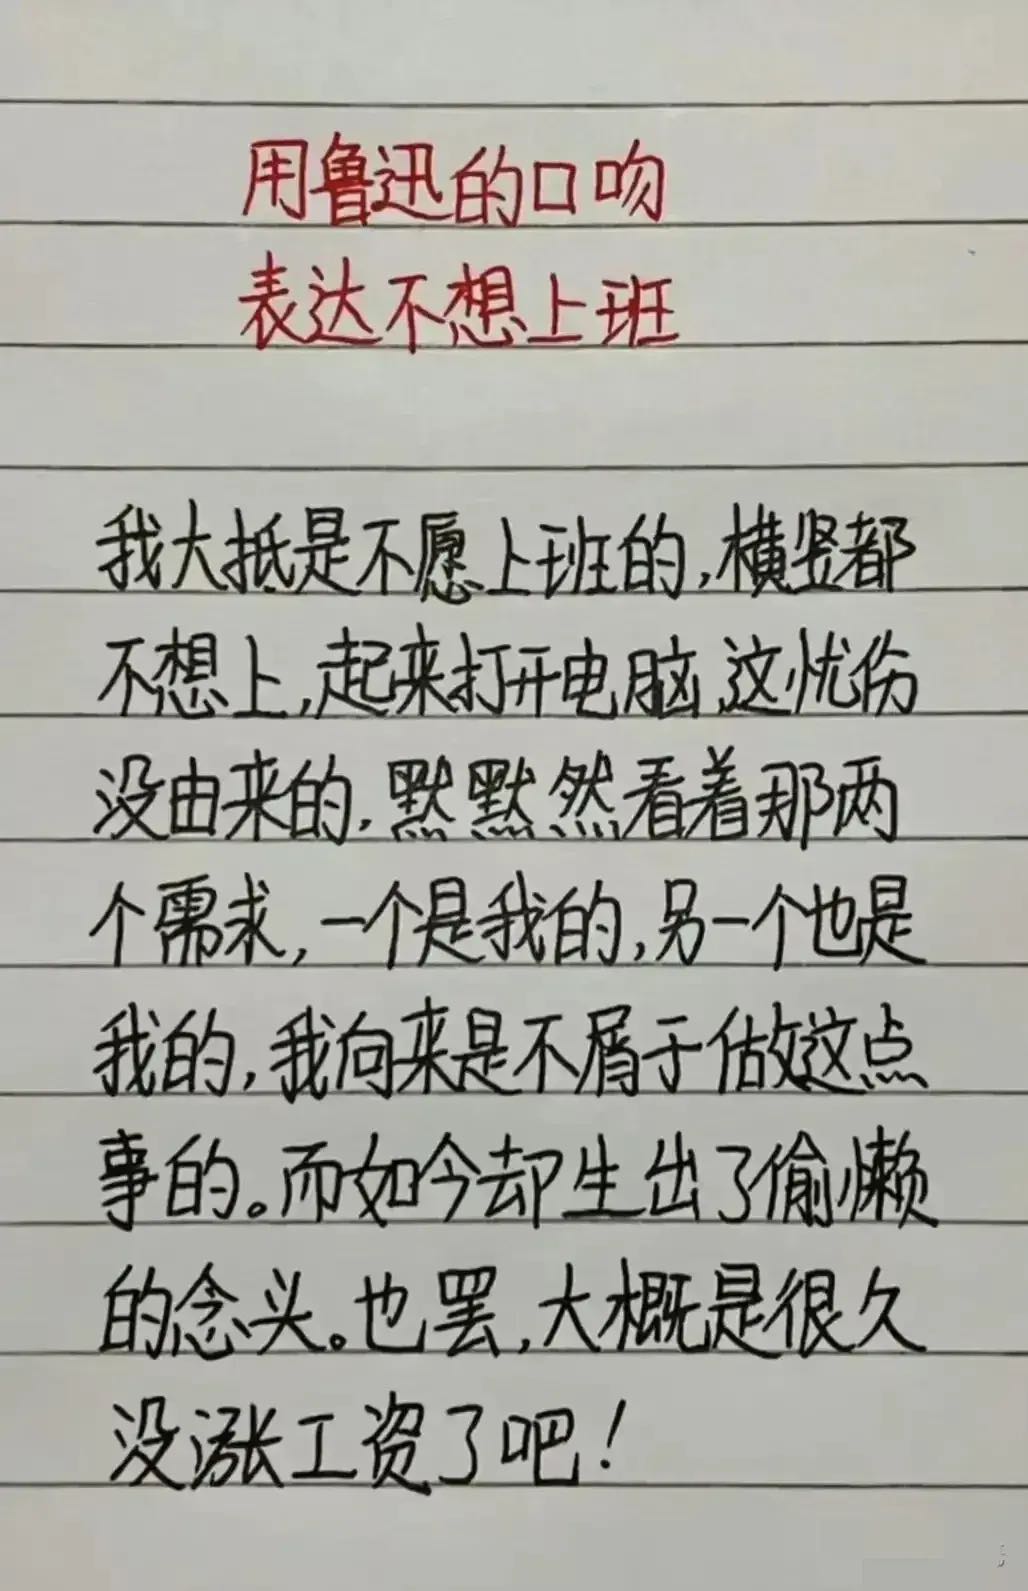 用鲁迅的口吻
表达不想上班
我大抵是不愿上班的,横竖都
不想上,起来打开电脑,这忧伤
没由来的,默默然看着那两
个需求,一个是我的,另一个也是
我的,我向来是不屑于做这点
事的。而如今却生出了偷懒
的念头。也罢,大概是很久
没涨工资了吧!